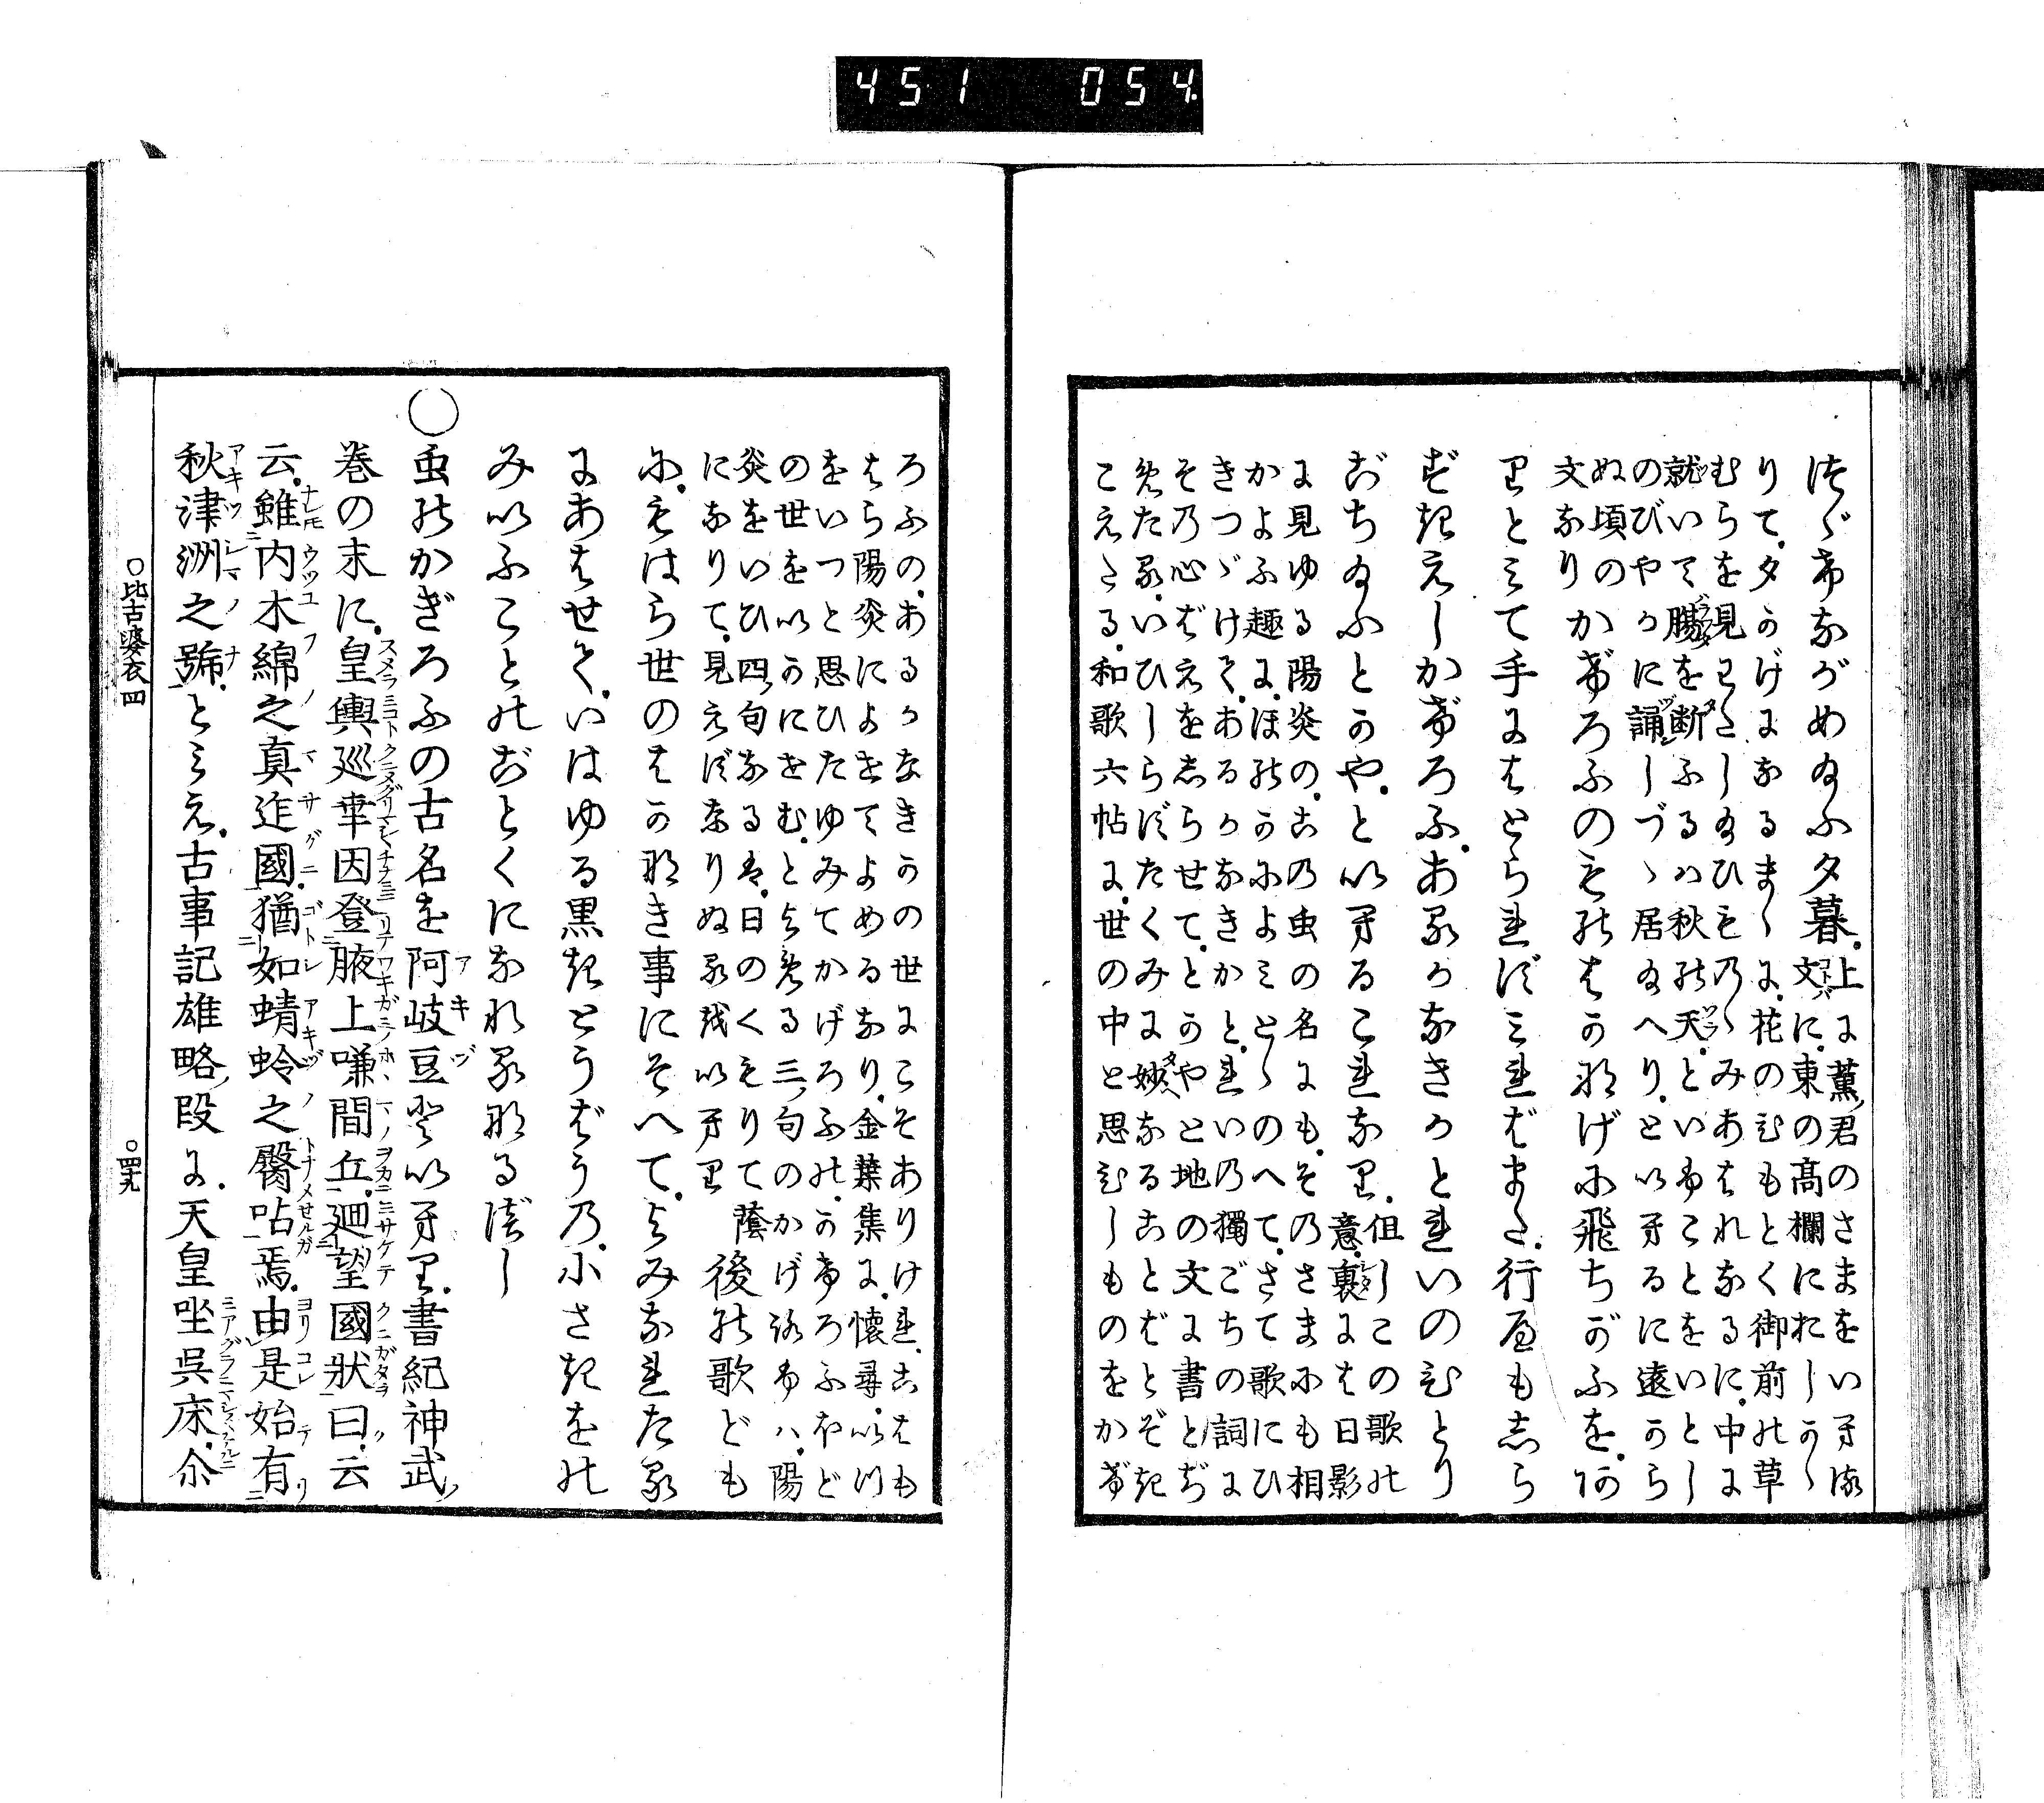 451 054
つゞけながめ給ふ夕暮。上に薫君のさまをいへる
文に。東の高欄におしかゝ
りて。夕かげになるまゝに。花のひもとく御前の草
むらを見わたし給ひもの〻みあはれなるに。中に
就いて腸を断ふるハ秋の天。といふことをいとし
のびやかに誦しづゝ居給へり。といへるに遠から
ぬ頃の
文なり
かげろふのものはかなげに飛ちがふを。
りとみて手にはとられずみればまた。行ヘもしら
ずきえしかげろふ。あるかなきかとれいのひとり
ごち給ふとかや。といへるこれなり。
但しこの歌の
意。裏には日影
に見ゆる陽炎の。この虫の名にも。そのさまにも相
かよふ趣に。ほのかによみとゝのへて。さて歌にひ
きつゞけて。あるかなきかと。れいの獨ごちの詞に
その心ばえをしらせて。とかやと地の文に書とぢ
めたる。いひしらずたくみに妙なることばとぞき
こえたる。和歌六帖に。世の中と思ひしものをかげ
ろふの。あるかなきかの世にこそありけれ。こはも
はら陽炎によせてよめるなり。金葉集に。懐尋。いつ
をいつと思ひたゆみてかげろふの。かげろふほど
の世をいかにせむ。とよめる三句のかげろふハ。陽
炎をいひ四句なるは。日のくもりて蔭
になりて。見えずなりぬるをいへり
後の歌ども
に。もはら世のはかなき事にそへて。よみなれたる
にあはせて。いはゆる黒きとうばうの。小さきをの
みいふことのごとくになれるなるべし
○虫のかぎろふの古名を阿岐豆といへり。書紀神武
巻の末に。皇輿巡幸因登腋上嗛間丘。廻望國狀曰。云
云。雖内木綿之真迮國。猶如蜻蛉之臀呫焉。由是始有
秋津洲之號。とみえ。古事記雄略段に。天皇坐呉床。尒
○比古婆衣四
○四十九